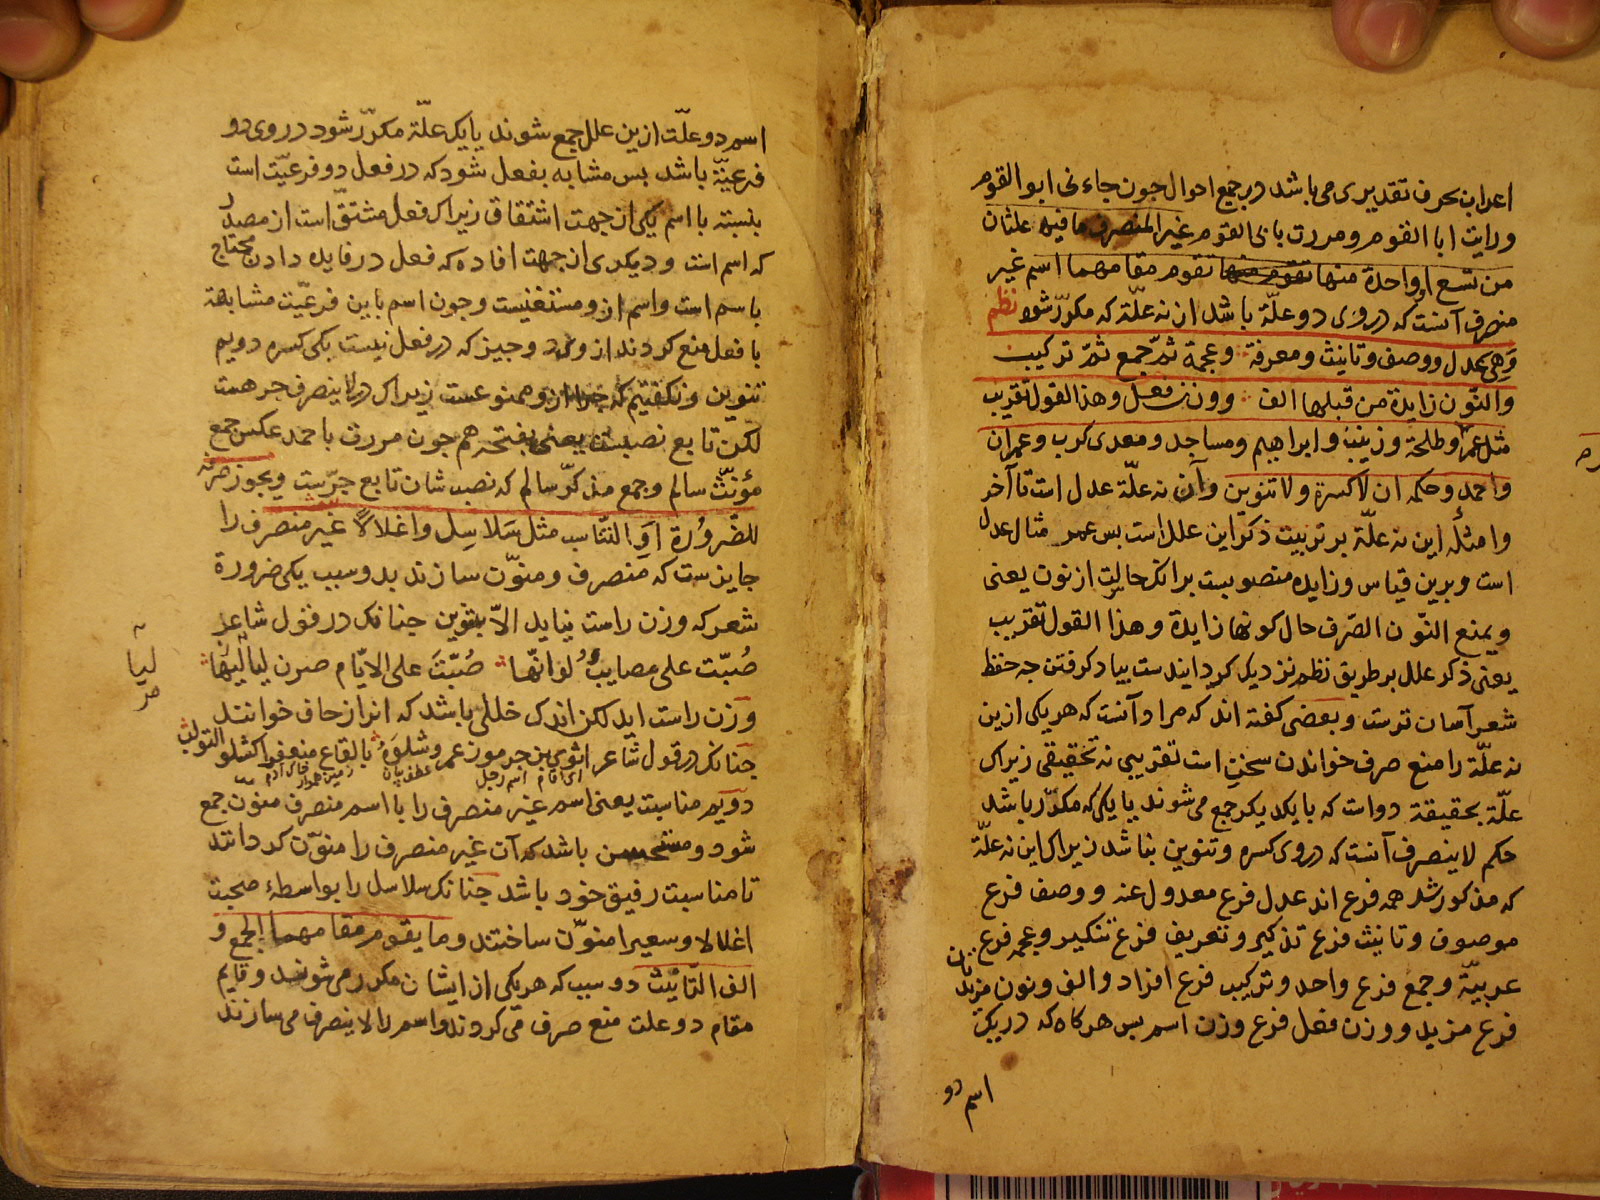 اعراب بحرف تقدیری می باشد در جمیع احوال جون جاءنی ابو القوم
ورایت ابا القوم ومررت بابی القوم غیر المنصرف ما فیه علتان
من تسع او واحدة منها تقوم مقامهما اسم غیر
منصرف آنست که در وی دو علّة باشد از نه علّة که مکرّر شود نظم
وَهِیَ عدل ووصف وتانیث ومعرفة وعجمة ثمّ جمع ثمّ ترکیب
والنّون زایدة من قبلها الف ووزن فعل وهذا القول تقریب
مثل عمر وطلحة وزینب وابراهیم ومساجد ومعدی کرب وعمران
واحمد وحکمه ان لا کسرة ولا تنوین وآن نه علّة عدل است تا آخر
وامثلهٔ این نه علّة بر ترتیب ذکر این علل است بس عمر مثال عدل
است وبرین قیاس وزایده منصوبست برانکه حالیت از نون یعنی
ویمنع النّون الصّرف حال کونها زایدة وهذا القول تقریب
یعنی ذکر علل بر طریق نظم نزدیک کردایندست بیاد کرفتن جه حفظ
شعر آسان ترست وبعضی کفته اند که مراد آنست که هر یکی ازین
نه علّة را منع صرف خواندن سخن است تقریبی نه تحقیقی زیراک
علّة بحقیقة دو است که با یکدیکر جمع می شوند یا یکی که مکرّر باشد
حکم لا ینصرف آنست که در وی کسره وتنوین نباشد زیراک این نه علّة
که مذکور شد همه فرع اند عدل فرع معدول عنه ووصف فرع
موصوف وتانیث فرع تذکیر وتعریف فرع تنکیر وعجمه فرع
عربیّة وجمع فرع واحد وترکیب فرع افراد والف ونون مزیدتان
فرع مزید ووزن فعل فرع وزن اسم بس هرکاه که در یک
اسم دو
اسم دو علّت ازین علل جمع شوند یا یک علّة مکرّر شود در وی دو
فرعیّة باشد بس مشابه بفعل شود که در فعل دو فرعیّت است
بنسبته با اسم یکی از جهت اشتقاق زیراک فعل مشتقّ است از مصدر
که اسم است ودیکری از جهت افاده که فعل در فایده دادن محتاج
باسم است واسم ازو مستغنیست وجون اسم باین فرعیّت مشابهة
با فعل منع کردند از وی دو جیز که در فعل نیست یکی کسره دویم
تنوین ونکفتیم که جرّ ازو ممنوعست زیراک در لا ینصرف جر هست
لکن تابع نصبست یعنی بفتحه هم جون مررت باحمد عکس جمع
مؤنّث سالم وجمع مذکرّ سالم که نصب شان تابع جرّست ویجوز صرفه
للضّرورة اَوِ التّناسب مثل سَلاسِل واغلالاً غیر منصرف را
جایزست که منصرف ومنوّن سازند بدو سبب یکی ضرورة
شعر که وزن راست نیاید الاّ بتنوین جنانک در قول شاعر
صُبّت علی مصایب لو انّها صُبّتَ علی الایّام صرن لیالیها
وزن راست اید لکن اندک خللی باشد که انرا زحاف خوانند
جنانک در قول شاعر
دویم مناسبت یعنی اسم غیر منصرف را با اسم منصرف منون جمع
شود ومستحسن باشد که آن غیر منصرف را منوّن کردانند
تا مناسبت رفیق خود باشد جنانک سلاسل را بواسطهٔ صحبت
اغلالا وسعیرا منوّن ساختند وما یقوم مقامهما الجمع و
الف التّانیث دو سبب که هر یکی از ایشان مکرر می شوند وقایم
مقام دو علت منع صرف می کردند واسم را لا ینصرف می سازند